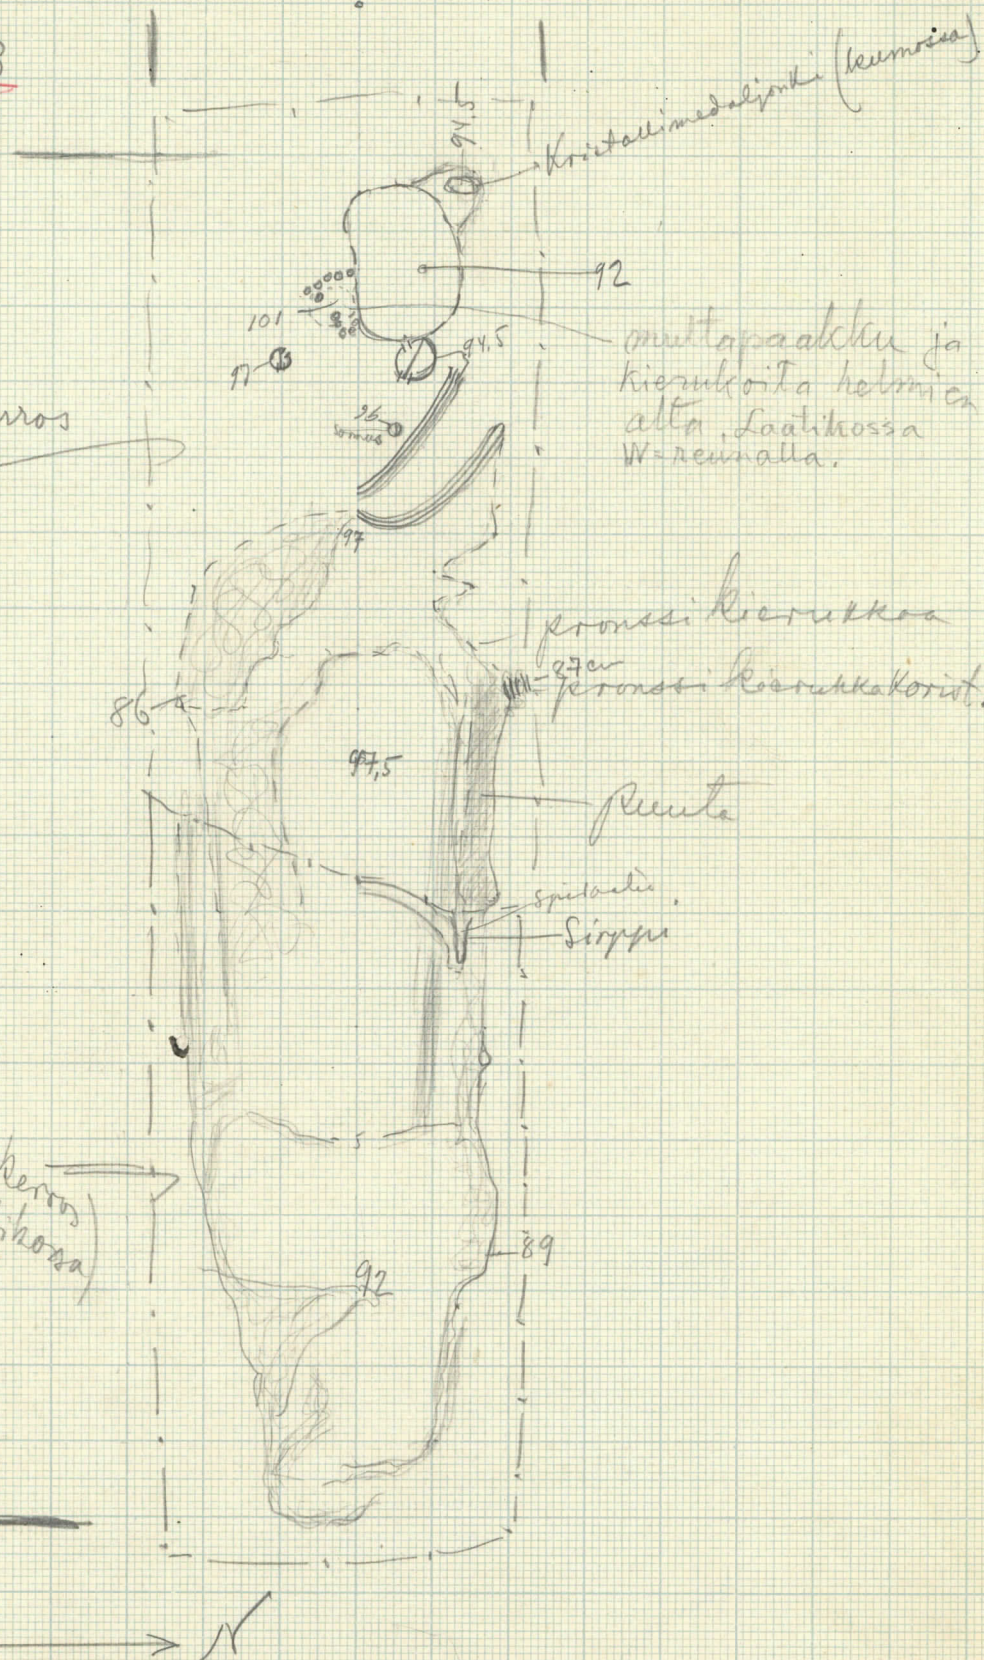 94.5
Kristallimedaljonki (kumossa)
92
101
multapaakku ja
kierukoita helmien
alta. Laatikossa
W=reunalla.
97
94.5
96
97
pronssikierukkaa
87cm
pronssikierukkakorist.
86
97,5
Puuta
spiraalia.
Sirppi
kerros
89
92
N